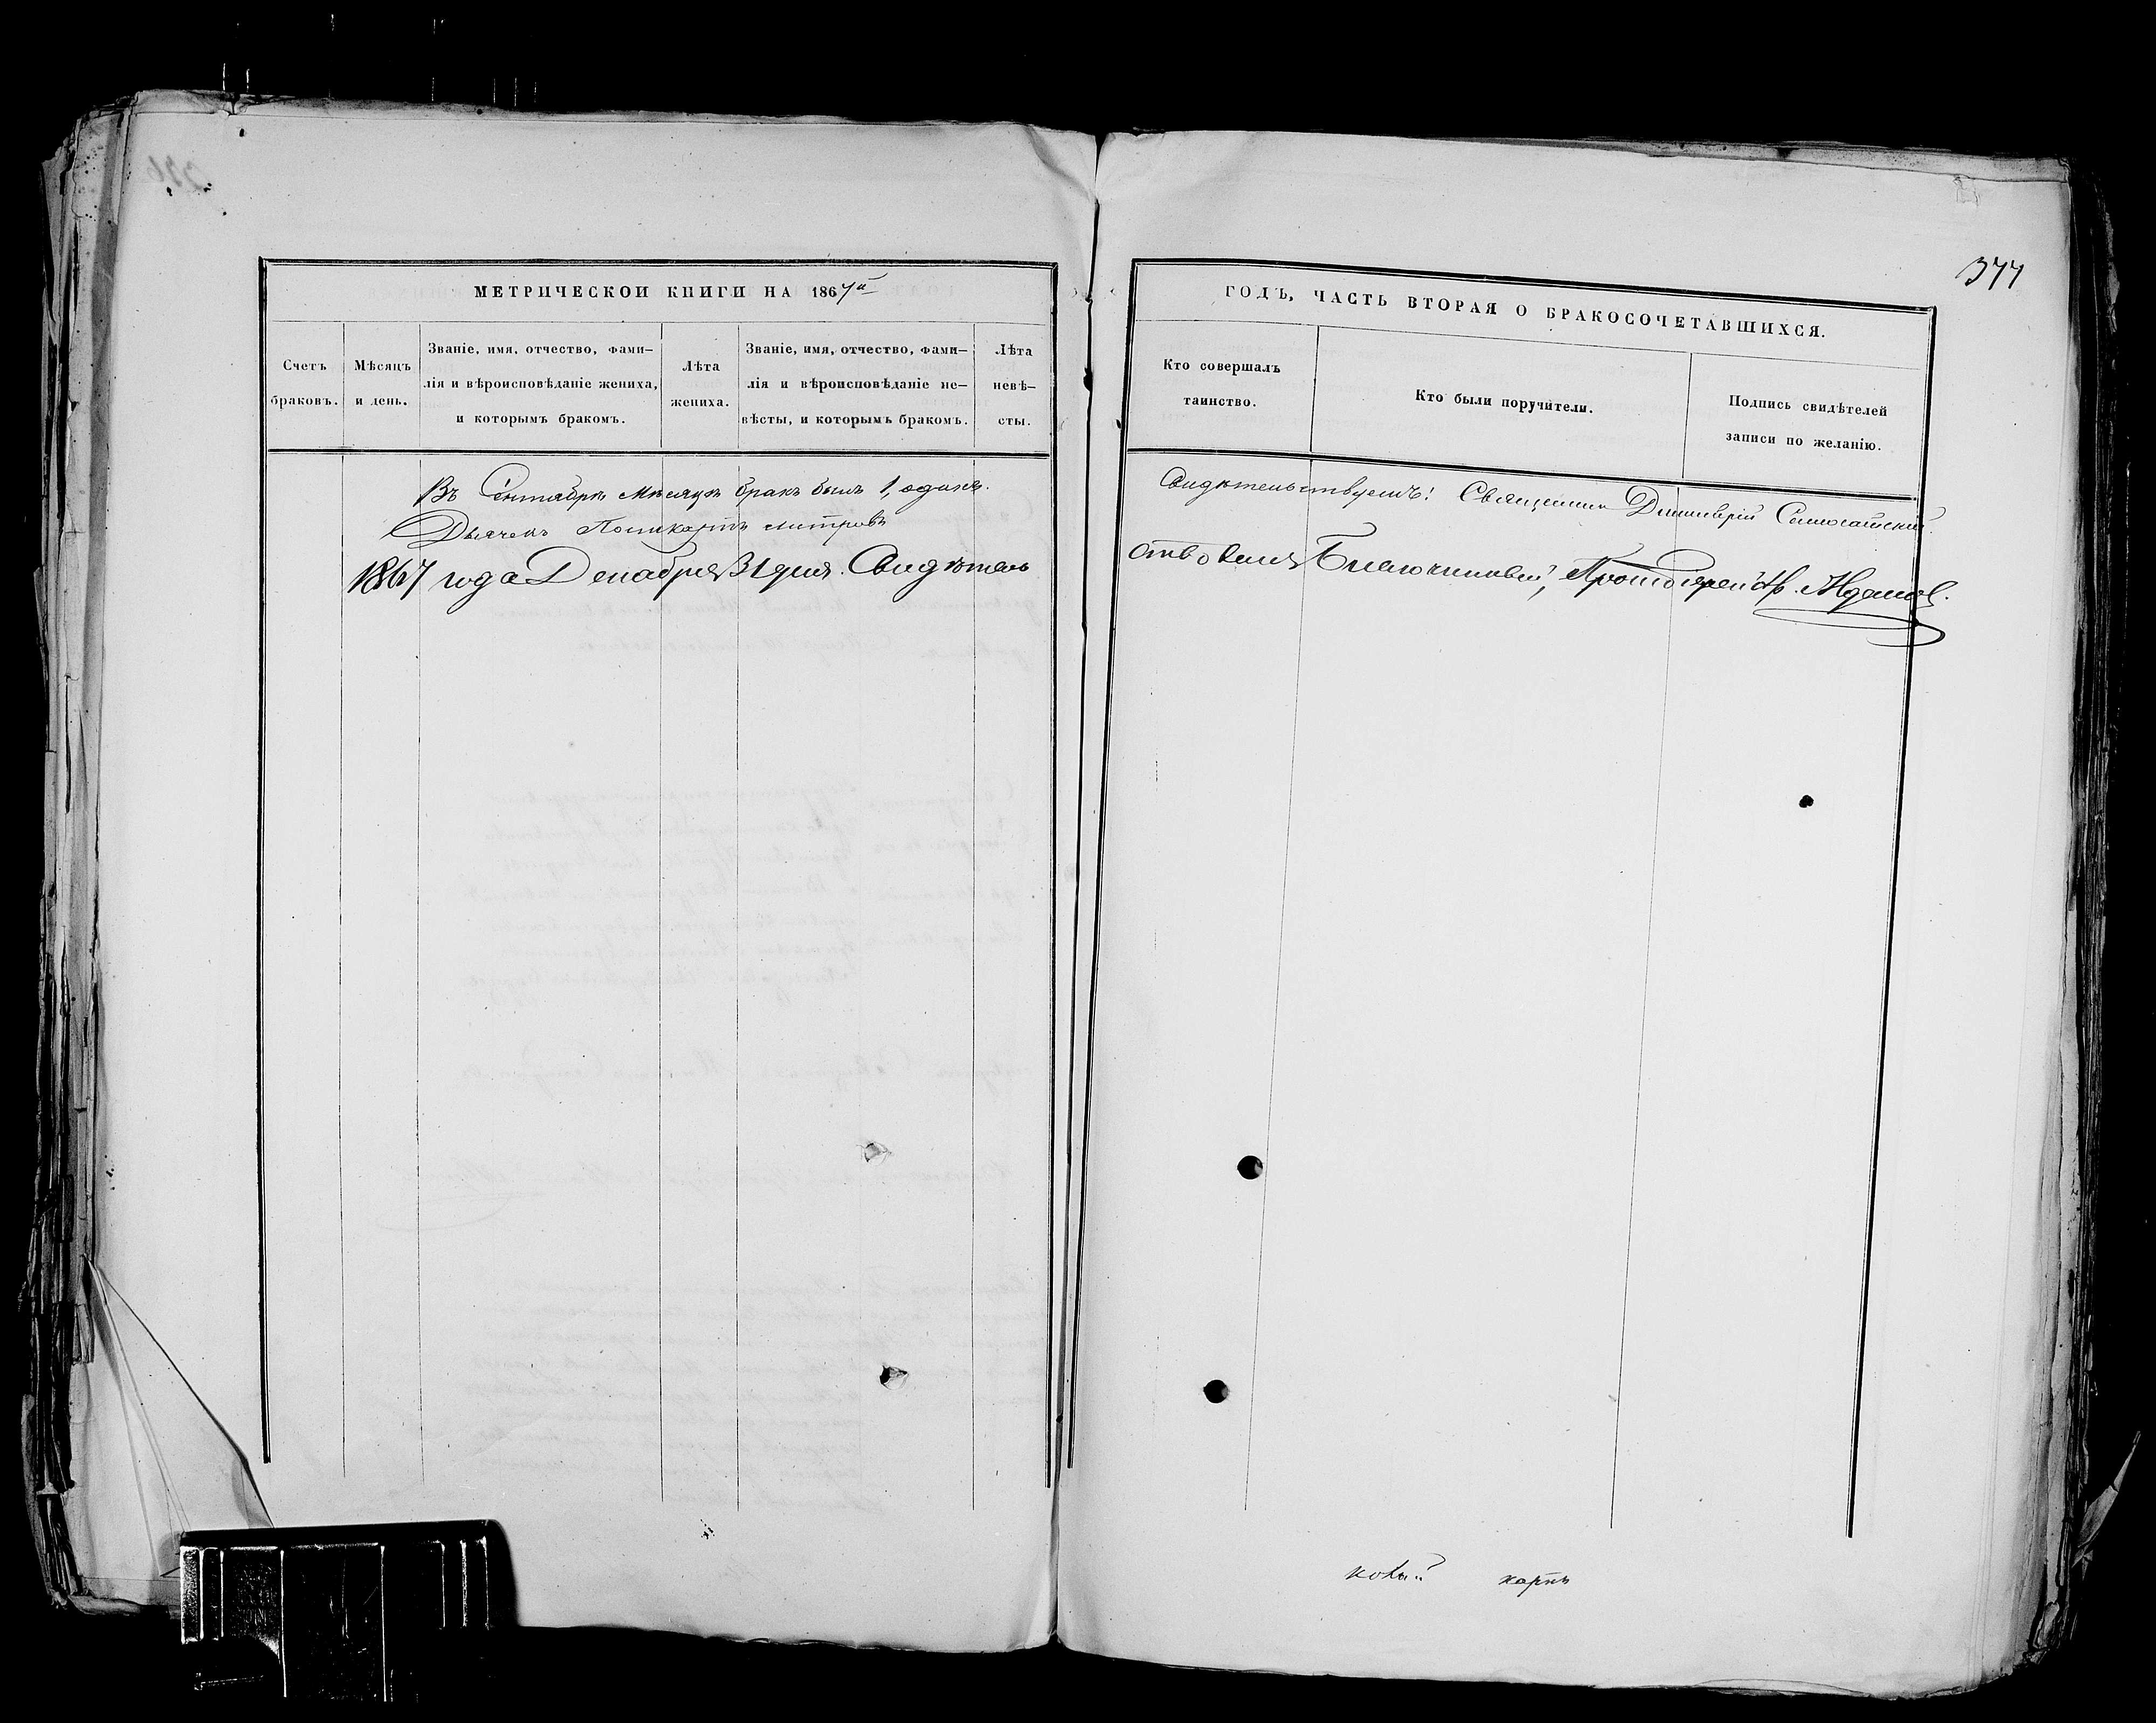 377
МЕТРИЧЕСКОЙ КНИГИ НА 1867й
Счетъ браковъ.
Мѣсяцъ и день.
Званіе, имя, отчество, фами-
лія и вѣроисповѣданіе жениха,
и которымъ бракомъ.
Лѣта жениха.
Званіе, имя, отчество, фами-
лія и вѣроисповѣданіе не-
вѣсты, и которымъ бракомъ.
Лѣта
невѣ-
сты.
Въ Сентябрѣ мѣсяцѣ бракъ былъ 1, одинъ.
Дьячекъ Поликарпъ
1867 года Декабря 31 дня. Свидѣтель
ГОДЪ, ЧАСТЬ ВТОРАЯ О БРАКОСОЧЕТАВШИХСЯ.
Кто совершалъ
таинство.
Кто были поручители.
Подпись свидѣтелей
записи по желанію.
Свидѣтельствуемъ: Священникъ Димитрій
ствовалъ Благочинный, Протоіерей